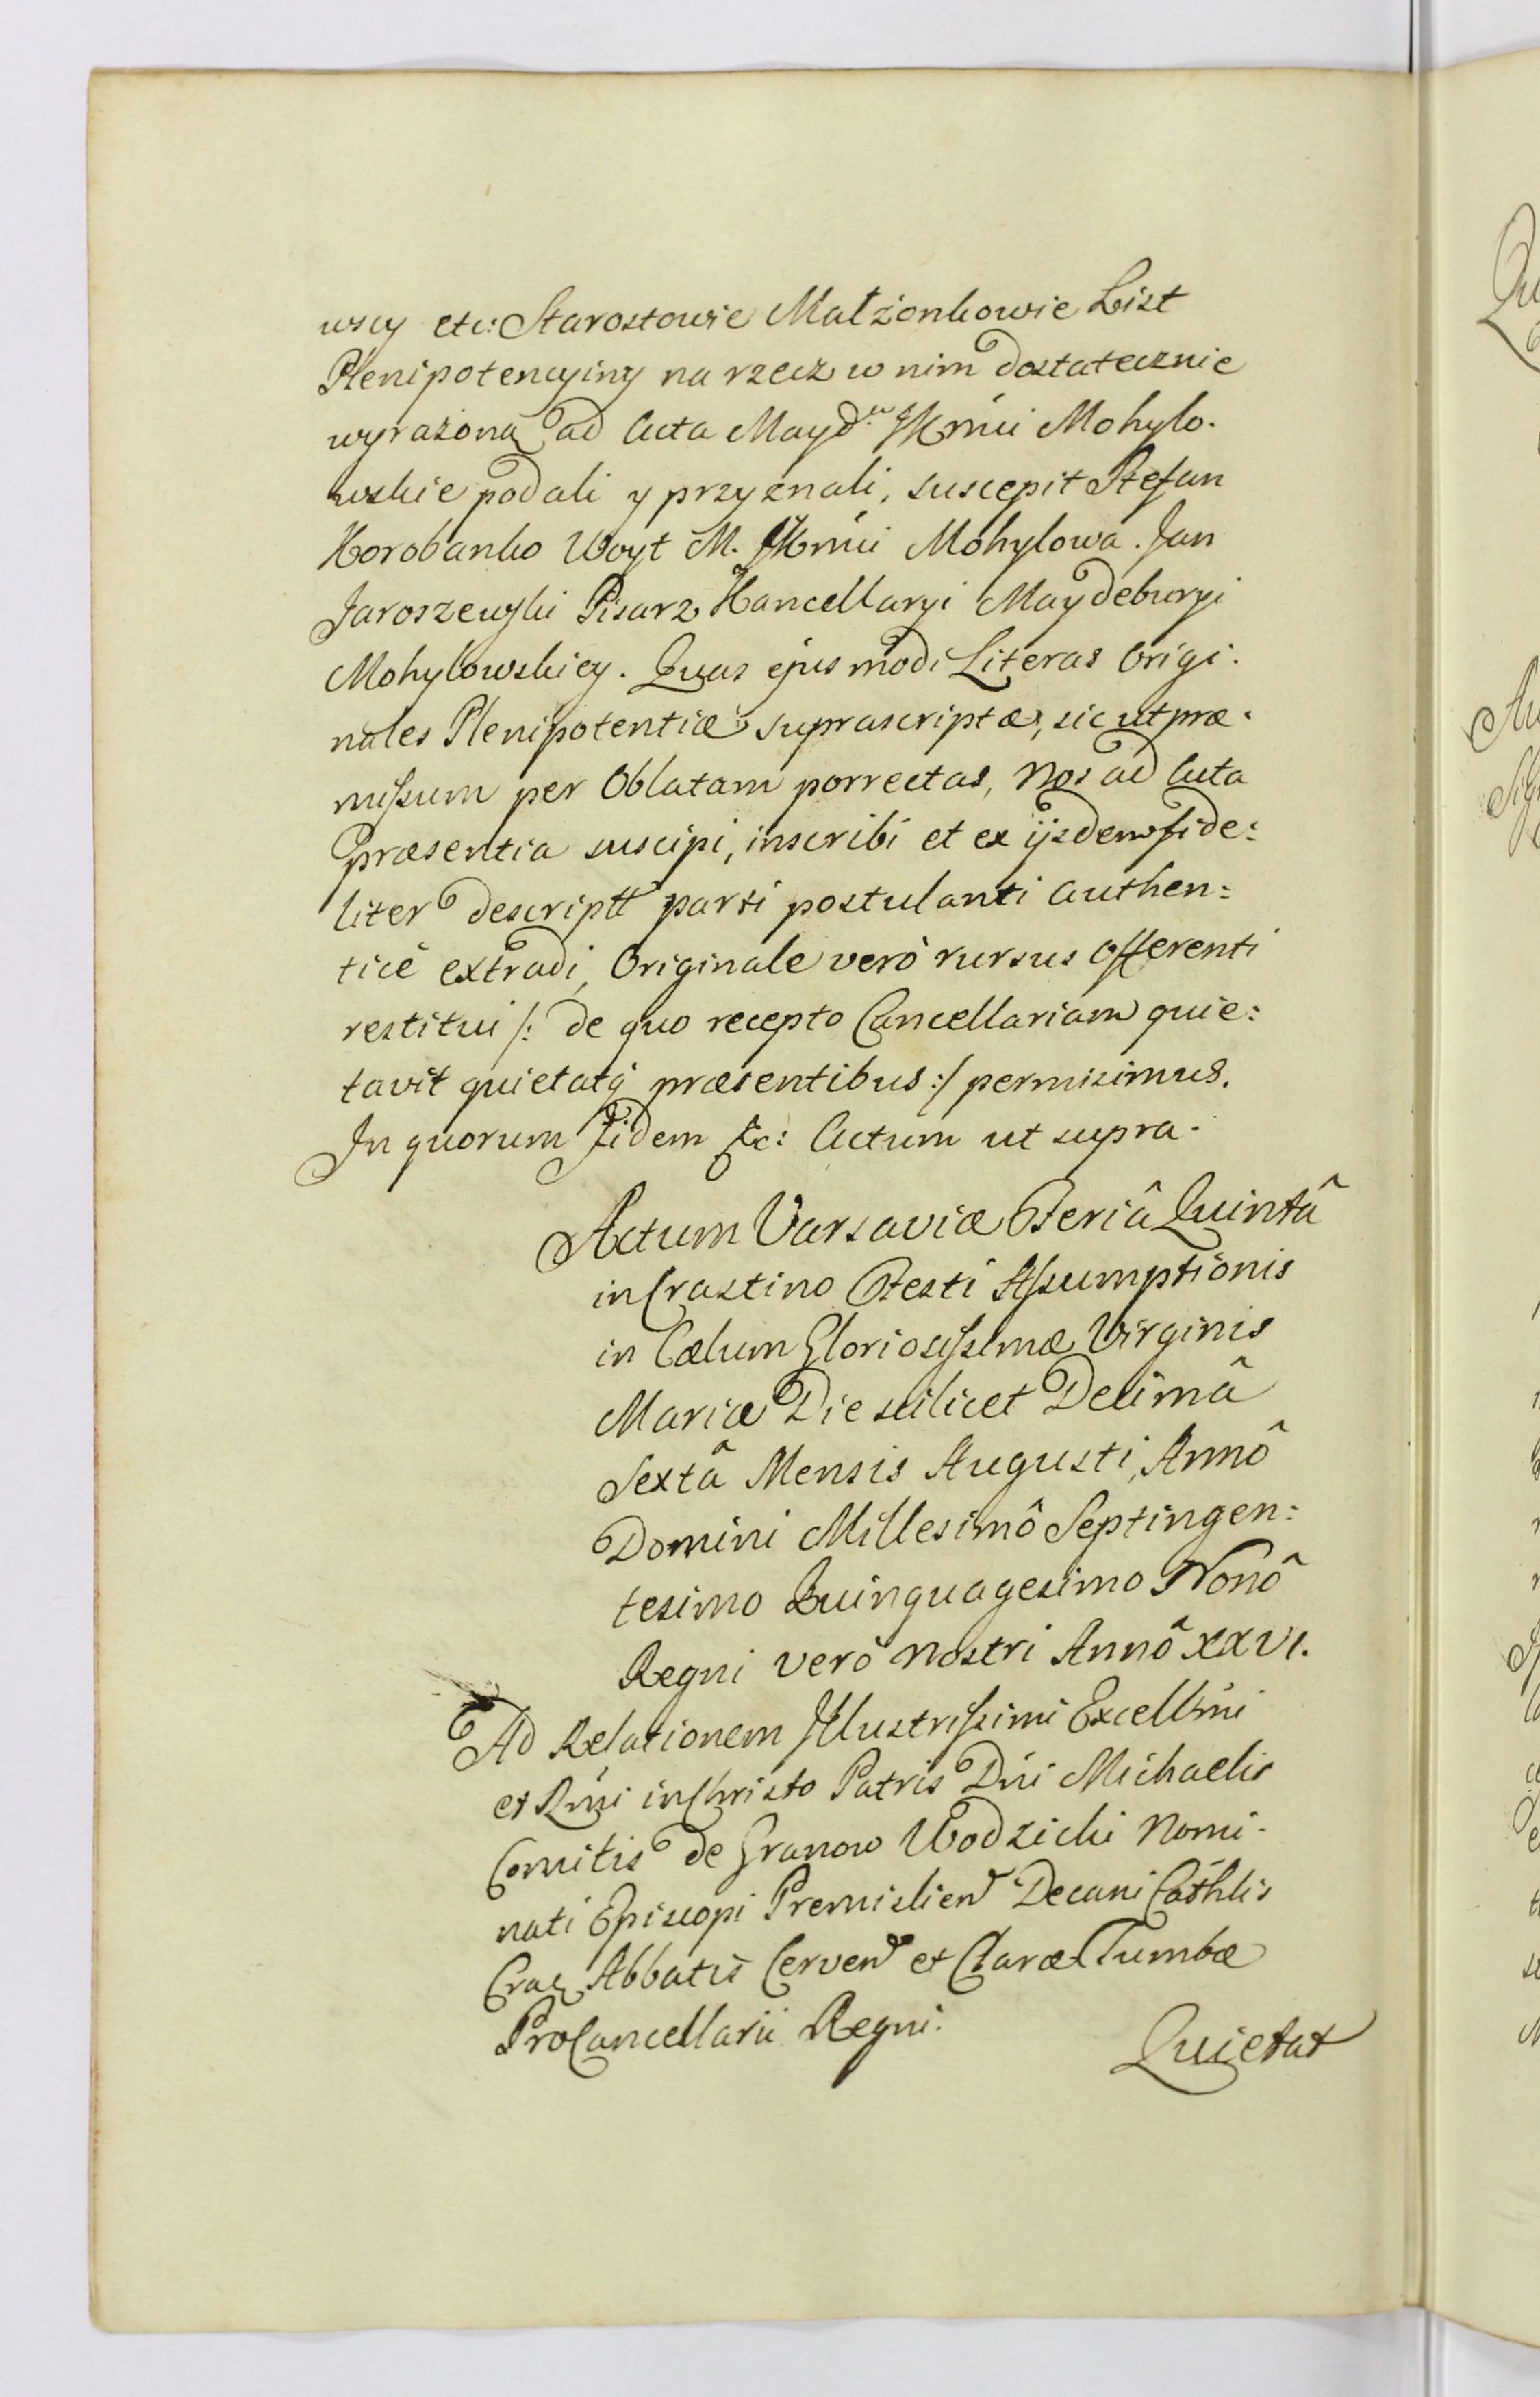 wscy etc: Starostowie Małżonkowie List
Plenipotencyiny na rzecz w nim dostatecznie
wyrażoną ad Acta Mayd. JKmći Mohylo.
wskie podali y przyznali, suscepit Stefan
Horobanko Woyt M. JKmći Mohylowa. Jan
Jaroszewski Pisarz Kancellaryi Maydeburyi
Mohylowskiey. Quas ejusmodi Literas Origi.
nales Plenipotentiæ suprascriptæ, sicut præ.
missum per Oblatam porrectas, Nos ad Acta
Præsentia suscipi, inscribi et ex ijsdem fide:
liter descriptt parti postulanti Authen:
ticè extradi, Originale verò rursus Offerenti
restitui /: de quo recepto Cancellariam quie:
tavit quietatq præsentibus :/ permisimus.
In quorum Fidem &c: Actum ut supra.
Actum Varsaviæ Feriâ Quintâ
in Crastino Festi Assumptionis
in Cælum Gloriosissimæ Virginis
Mariæ Die scilicet Decimâ
Sextâ Mensis Augusti, Annô
Domini Millesimô Septingen:
tesimo Quinquagesimo Nonô
Regni verò nostri Annô XXVI.
Ad Relationem Illustrissimi Excellmi
et Rmi in Christo Patris Dni Michaelis
Comitis de Granow Wodzicki Nomi.
nati Episcopi Premislien Decani Cathlis
Crac Abbatis Cerven et Claræ Tumbæ
ProCancellarii Regni.
Quietat